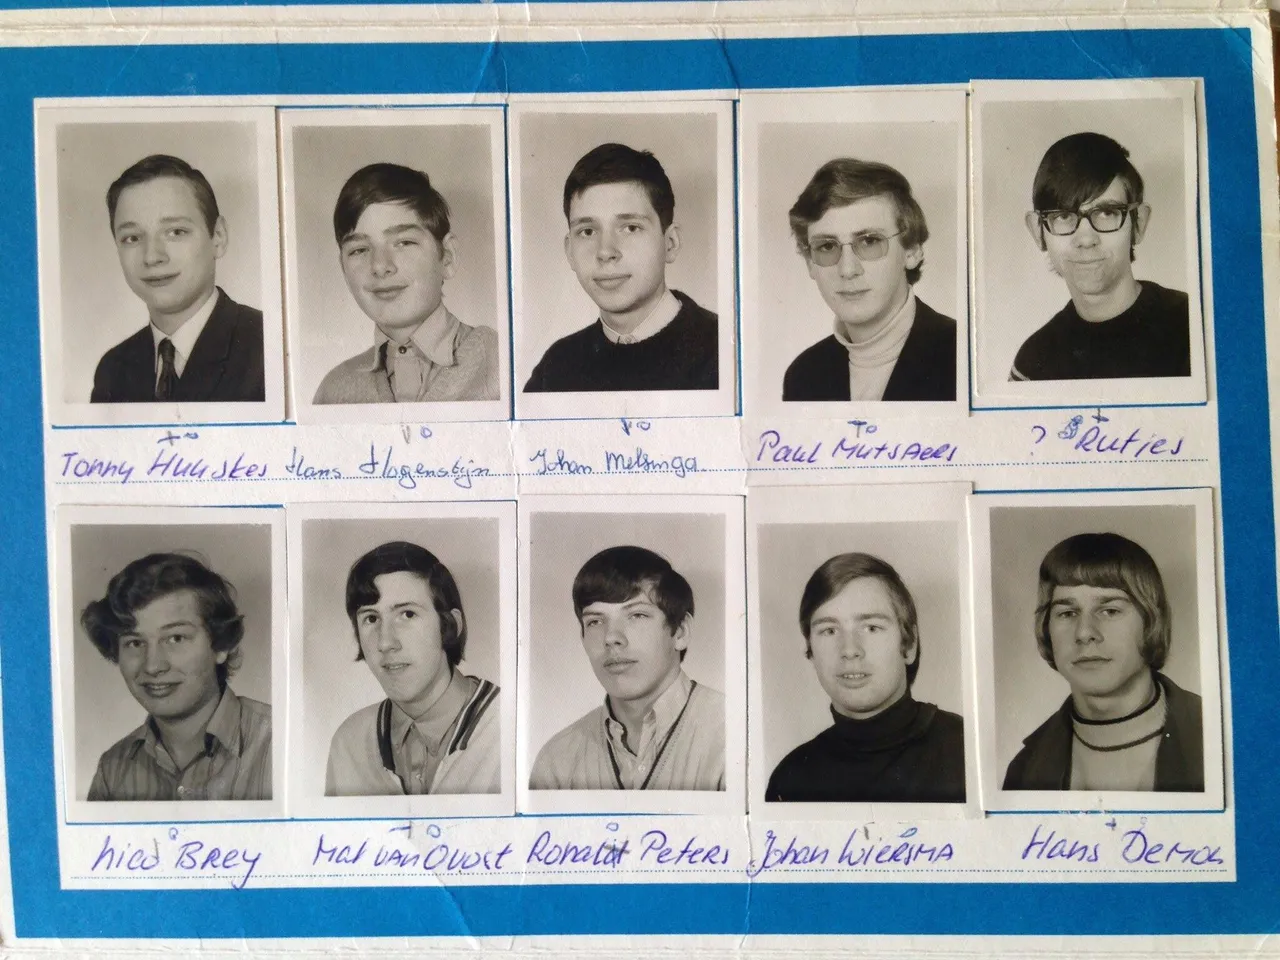 Tonny Huuskes Hans Hogenstijn Johan Melsinga Paul Mutsaers ? Rutjes
Nico Brey Mat van Ovost Ronald Peters Johan Wiersma Hans Demol